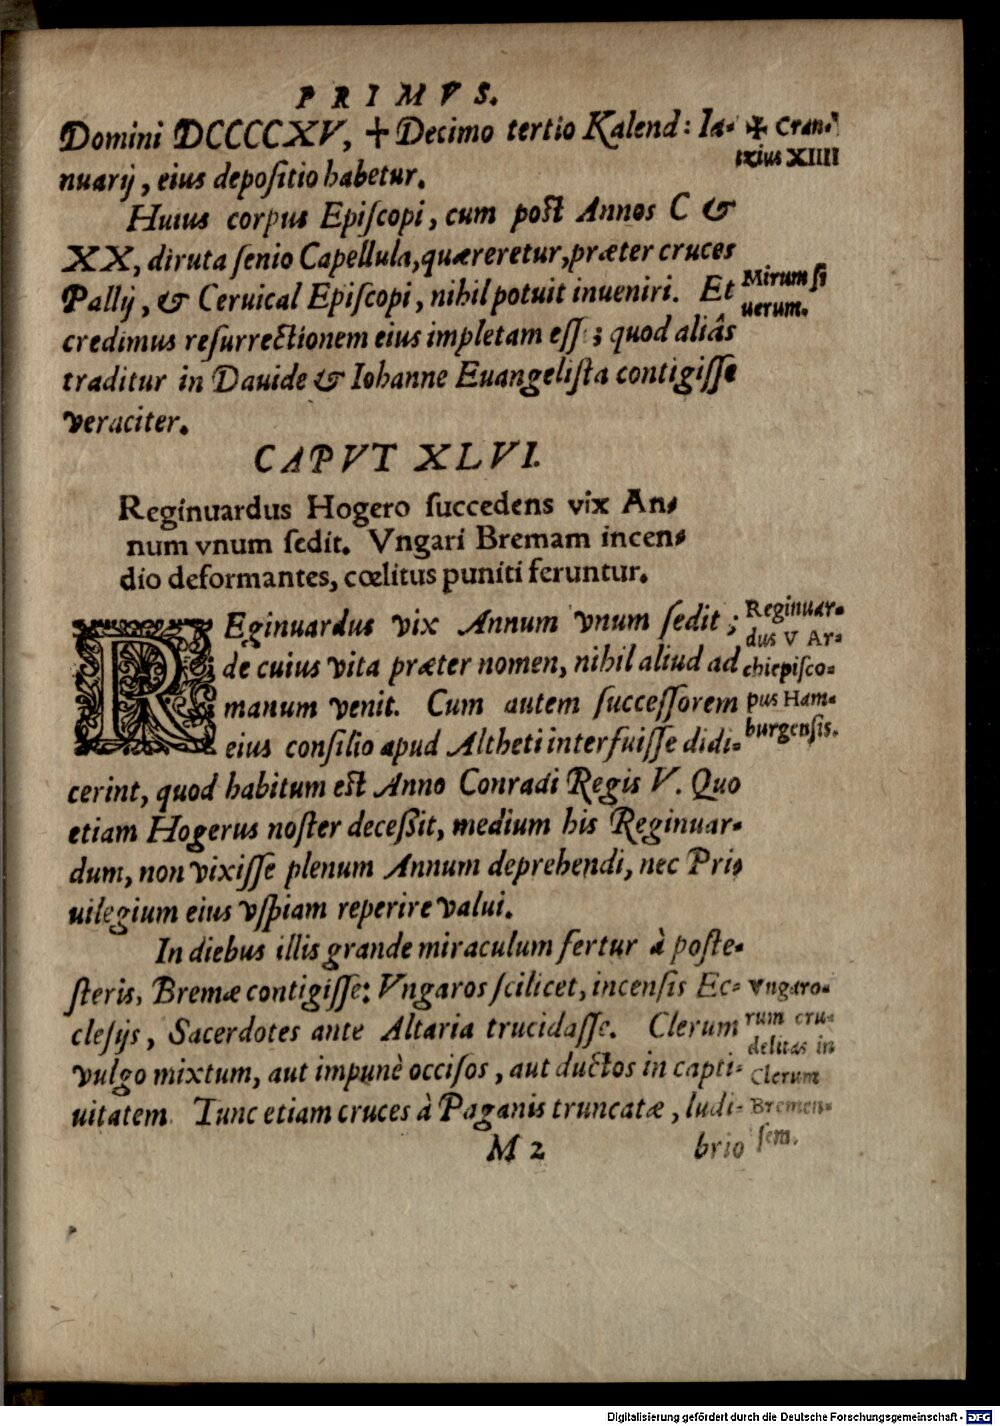 PRIMVS.
Domini DCCCCXV, ✝ Decimo tertio Kalend: Ia-
nuarij, eius depoſitio habetur.
✠ Cran-
tzius XIIII
Huius corpus Epiſcopi, cum poſt Annos C &
XX, diruta ſenio Capellula, quæreretur, præter cruces
Pallij, & Ceruical Epiſcopi, nihil potuit inueniri. Et
credimus reſurrectionem eius impletam eſſ; quod aliâs
traditur in Dauide & Iohanne Euangeliſta contigiſſe
veraciter.
Mirum ſi
uerum.
CAPVT XLVI.
Reginuardus Hogero ſuccedens vix An-
num vnum ſedit. Vngari Bremam incen-
dio deformantes, cœlitus puniti feruntur.
REginuardus vix Annum vnum ſedit;
de cuius vita præter nomen, nihil aliud ad
manum venit. Cum autem ſucceſſorem
eius conſilio apud Altheti interfuiſſe didi-
cerint, quod habitum eſt Anno Conradi Regis V. Quo
etiam Hogerus noſter deceßit, medium his Reginuar-
dum, non vixiſſe plenum Annum deprehendi, nec Pri-
uilegium eius vſpiam reperire valui.
Reginuar-
dus V Ar-
chiepiſco-
pus Ham-
burgenſis.
In diebus illis grande miraculum fertur à poſte-
ſteris, Bremæ contigiſſe: Vngaros ſcilicet, incenſis Ec-
cleſijs, Sacerdotes ante Altaria trucidaſſe. Clerum
vulgo mixtum, aut impunè occiſos, aut ductos in capti-
uitatem. Tunc etiam cruces à Paganis truncatæ, ludi-
Vngaro-
rum cru-
delitas in
Clerum
Bremen-
ſem.
M 2
brio
Digitalisierung gefördert durch die Deutsche Forschungsgemeinschaft - DFG